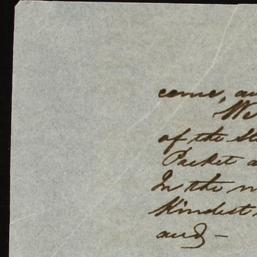 come, au
We
of the St
Packet a
In the m
Kindest
and –